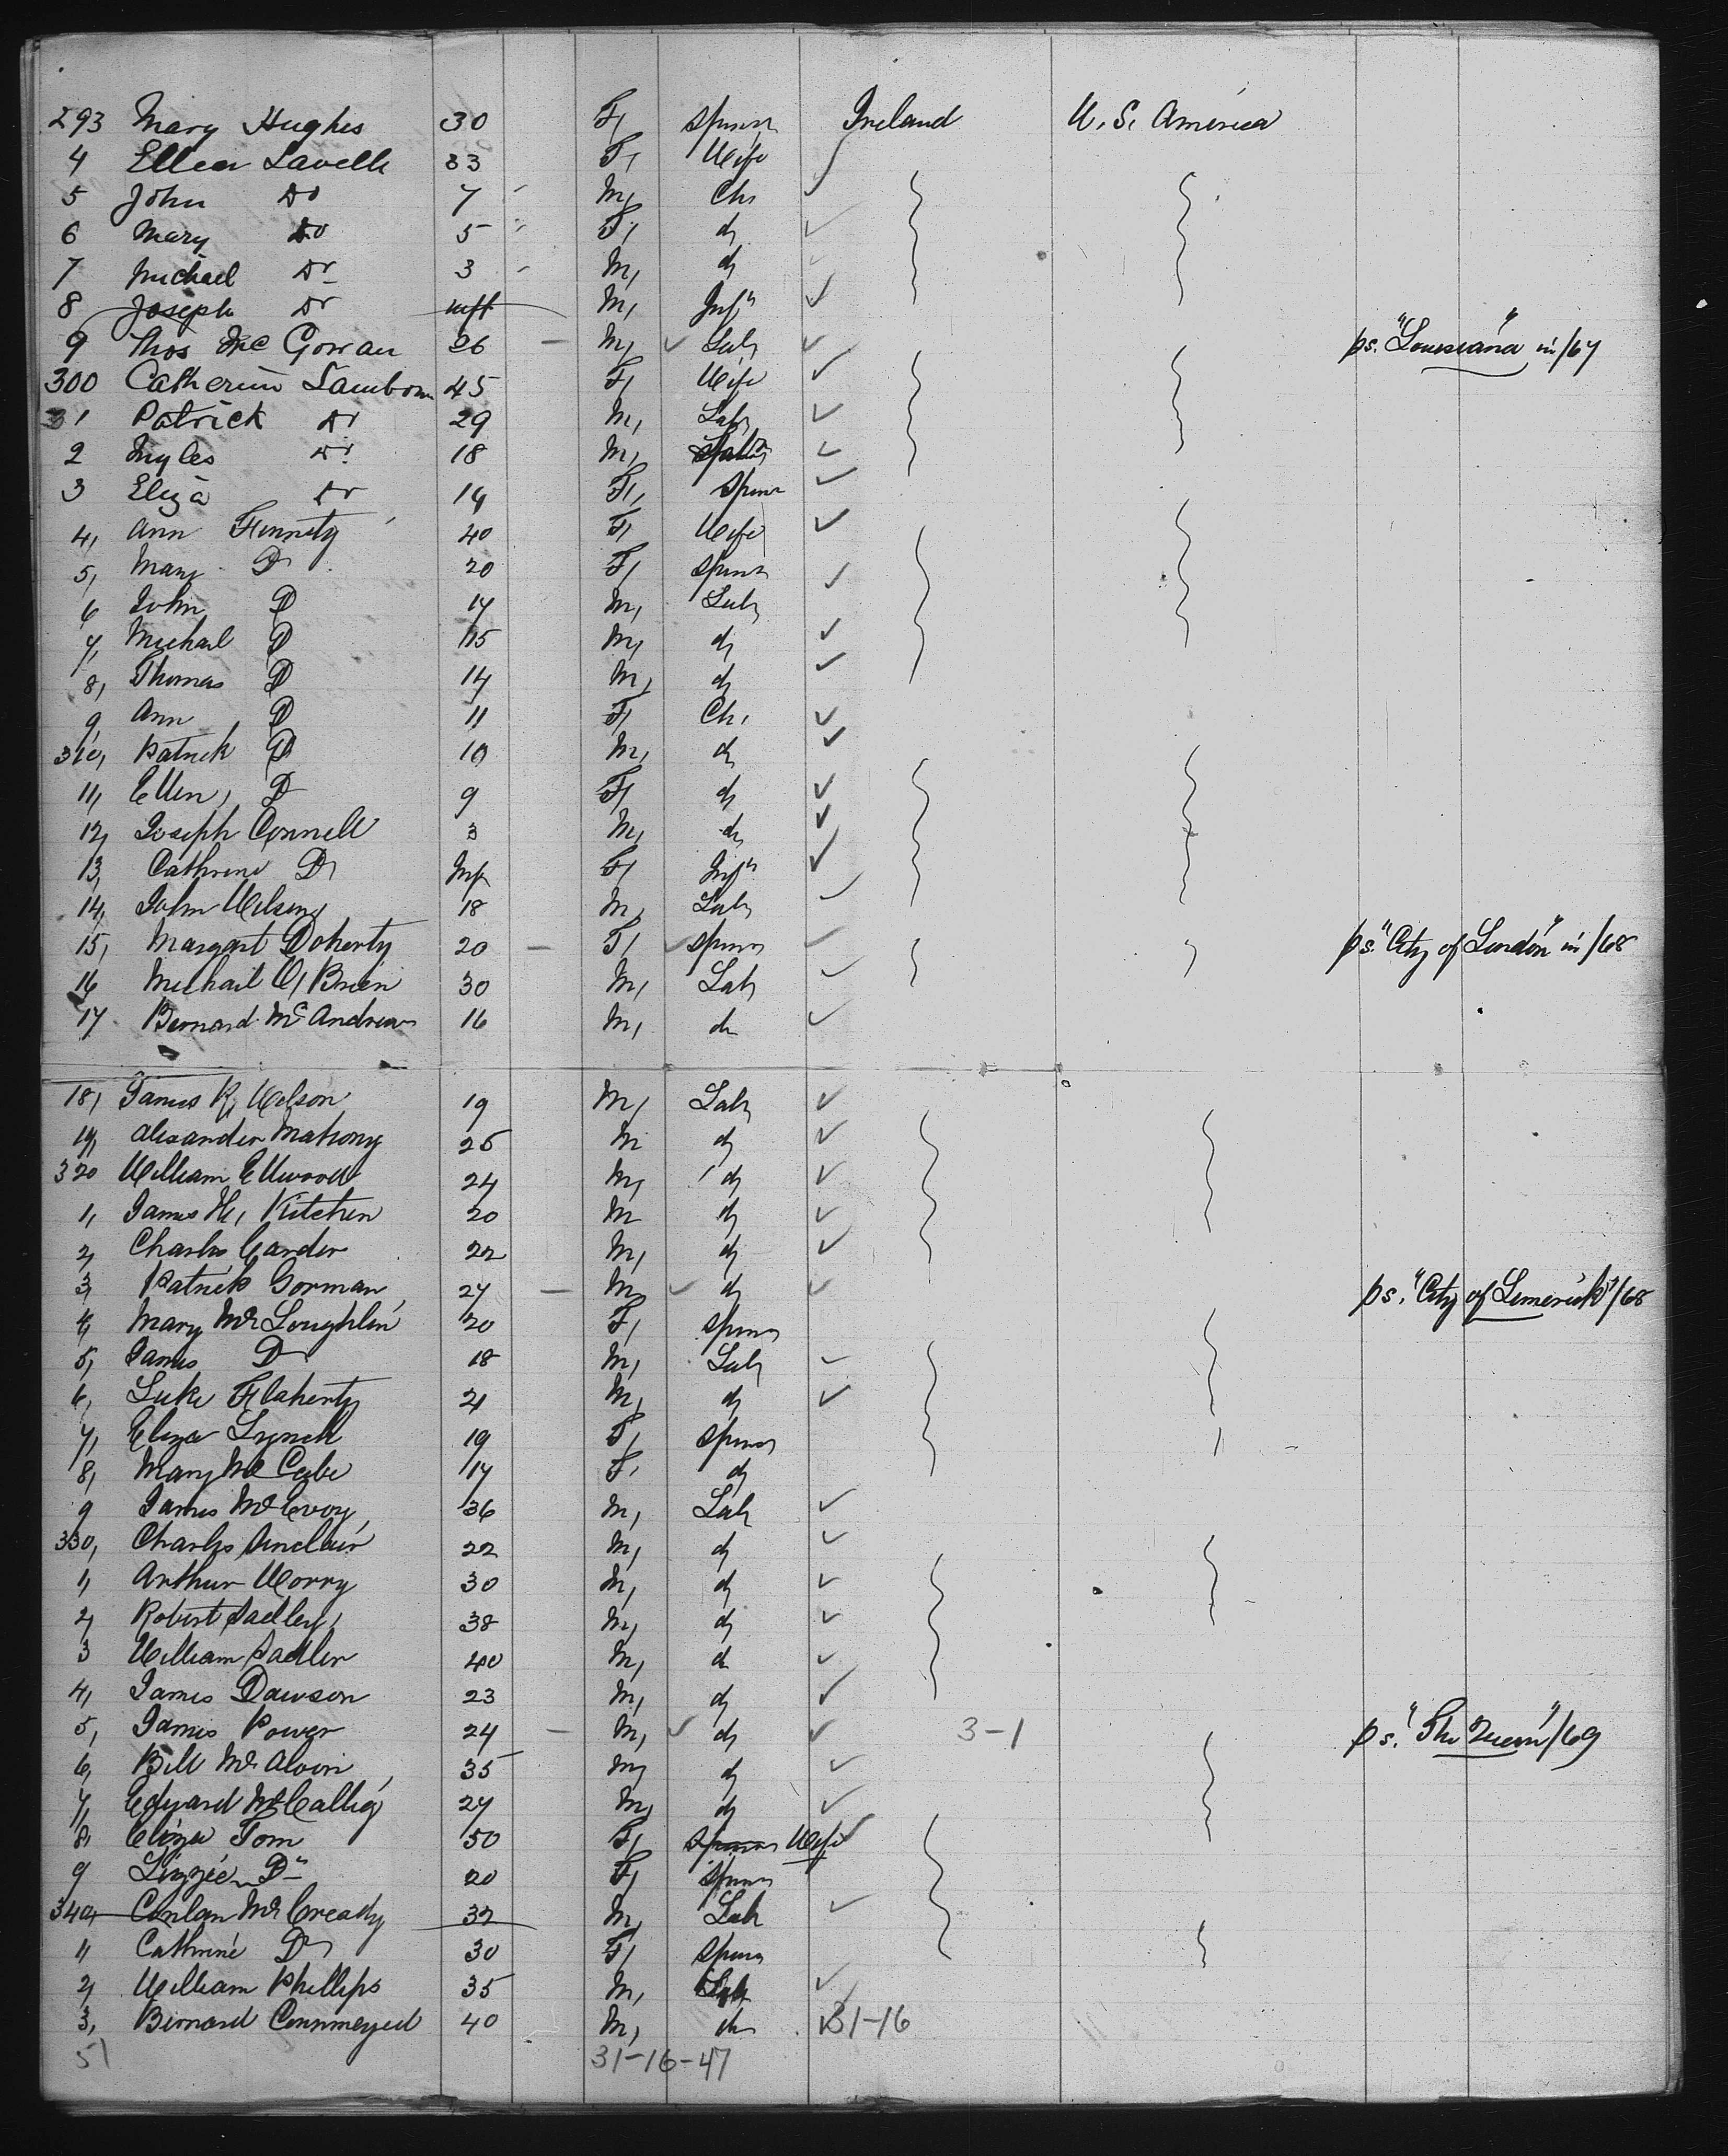 293 Mary Hughes 30 F, Spinsr Ireland U. S. America
4 Ellen Lavelle 33 F, Wife
5 John Do 7 M, Ch,
6 Mary Do 5 F, d,
7 Michael Dr 3 M, d,
8 Joseph Dr inft M, Inft
9 Thos Mc Gowan 26 M, Lab, ps. "Louisiana" in/67
300 Catherine 45 F, Wife
31 Patrick Dr 29 M, Lab,
2 Myles Dr 18 M,
3 Eliza Dr 14 F, Spinr
4, Ann Finnity 40 F, Wife
5, Mary D 20 F, Spinsr
6 John D 17 M, Lab,
7, Michael D 15 M, d,
8, Thomas D 14 M, d,
9, Ann D 11 F, Ch,
310, Patrick D 10 M, d,
11, Ellen, D 9 F, d,
12, Joseph Connell 3 M, d,
13, Cathrine D Inf F, Inft
14, John Wilson 18 M, Lab,
15, Margart Doherty 20 F, Spinsr ps. "City of London" in/68
16 Michail O'Brien 30 M, Lab,
17 Bernard McAndrew 16 M, do
18, James R, Wilson 19 M, Lab,
19, Alexander Mahony 25 M d,
320 William Ellwood 24 M, d,
1, James W, Kitchen 20 M d,
2, Charles Carder 22 M, d,
3, Patrick Gorman 27 M, d, ps. "City of Limerick"/68
4, Mary McLoughlin 20 F, Spinsr
5, James D 18 M, Lab,
6, Luke Flaherty 21 M, d,
7, Eliza Lynch 19 F, Spinsr
8, Mary McCabe 17 F, d,
9 James McEvoy 36 M, Lab
330, Charles Sinclair 22 M, d,
1, Arthur Worry 30 M, d,
2, Robert Sadler, 38 M, d,
3 William Sadler 40 M, do
4, James Dawson 23 M, d,
5, James Power 24 M, d, 3-1 ps. "The Queen"/69
6, Bill 35 M, d,
7, Edward 27 M, d,
8, Eliza Tom 50 F, Spinsr Wife
9 Lizzie D 20 F, Spinsr
340, Conlan McCready 32 M, Lab
1, Cathrine D 30 F, Spinsr
2, William Phillips 35 M, Lab
3, Bernard 40 M, do 31-16
51 31-16-47